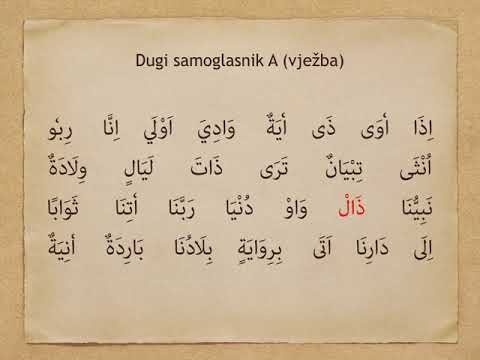 Dugi samoglasnik A (vježba)
اِذَا أٰوَى ذَى أٰيَةٌ وَادِيَ اَوْلٰي اِنَّا رِبٰو
اُنْثَى تِبْيَانٌ تَرَى ذَاتَ لَيَالٍ وِلَادَةٌ
نَبِيُّنَا ذَالْ وَاوْ دُنْيَا رَبَّنَا أٰتِنَا ثَوَابًا
اِلَى دَارِنَا اَتَى بِرِوَايَةٍ بِلَادُنَا بَارِدَةٌ أٰنِيَةٌ